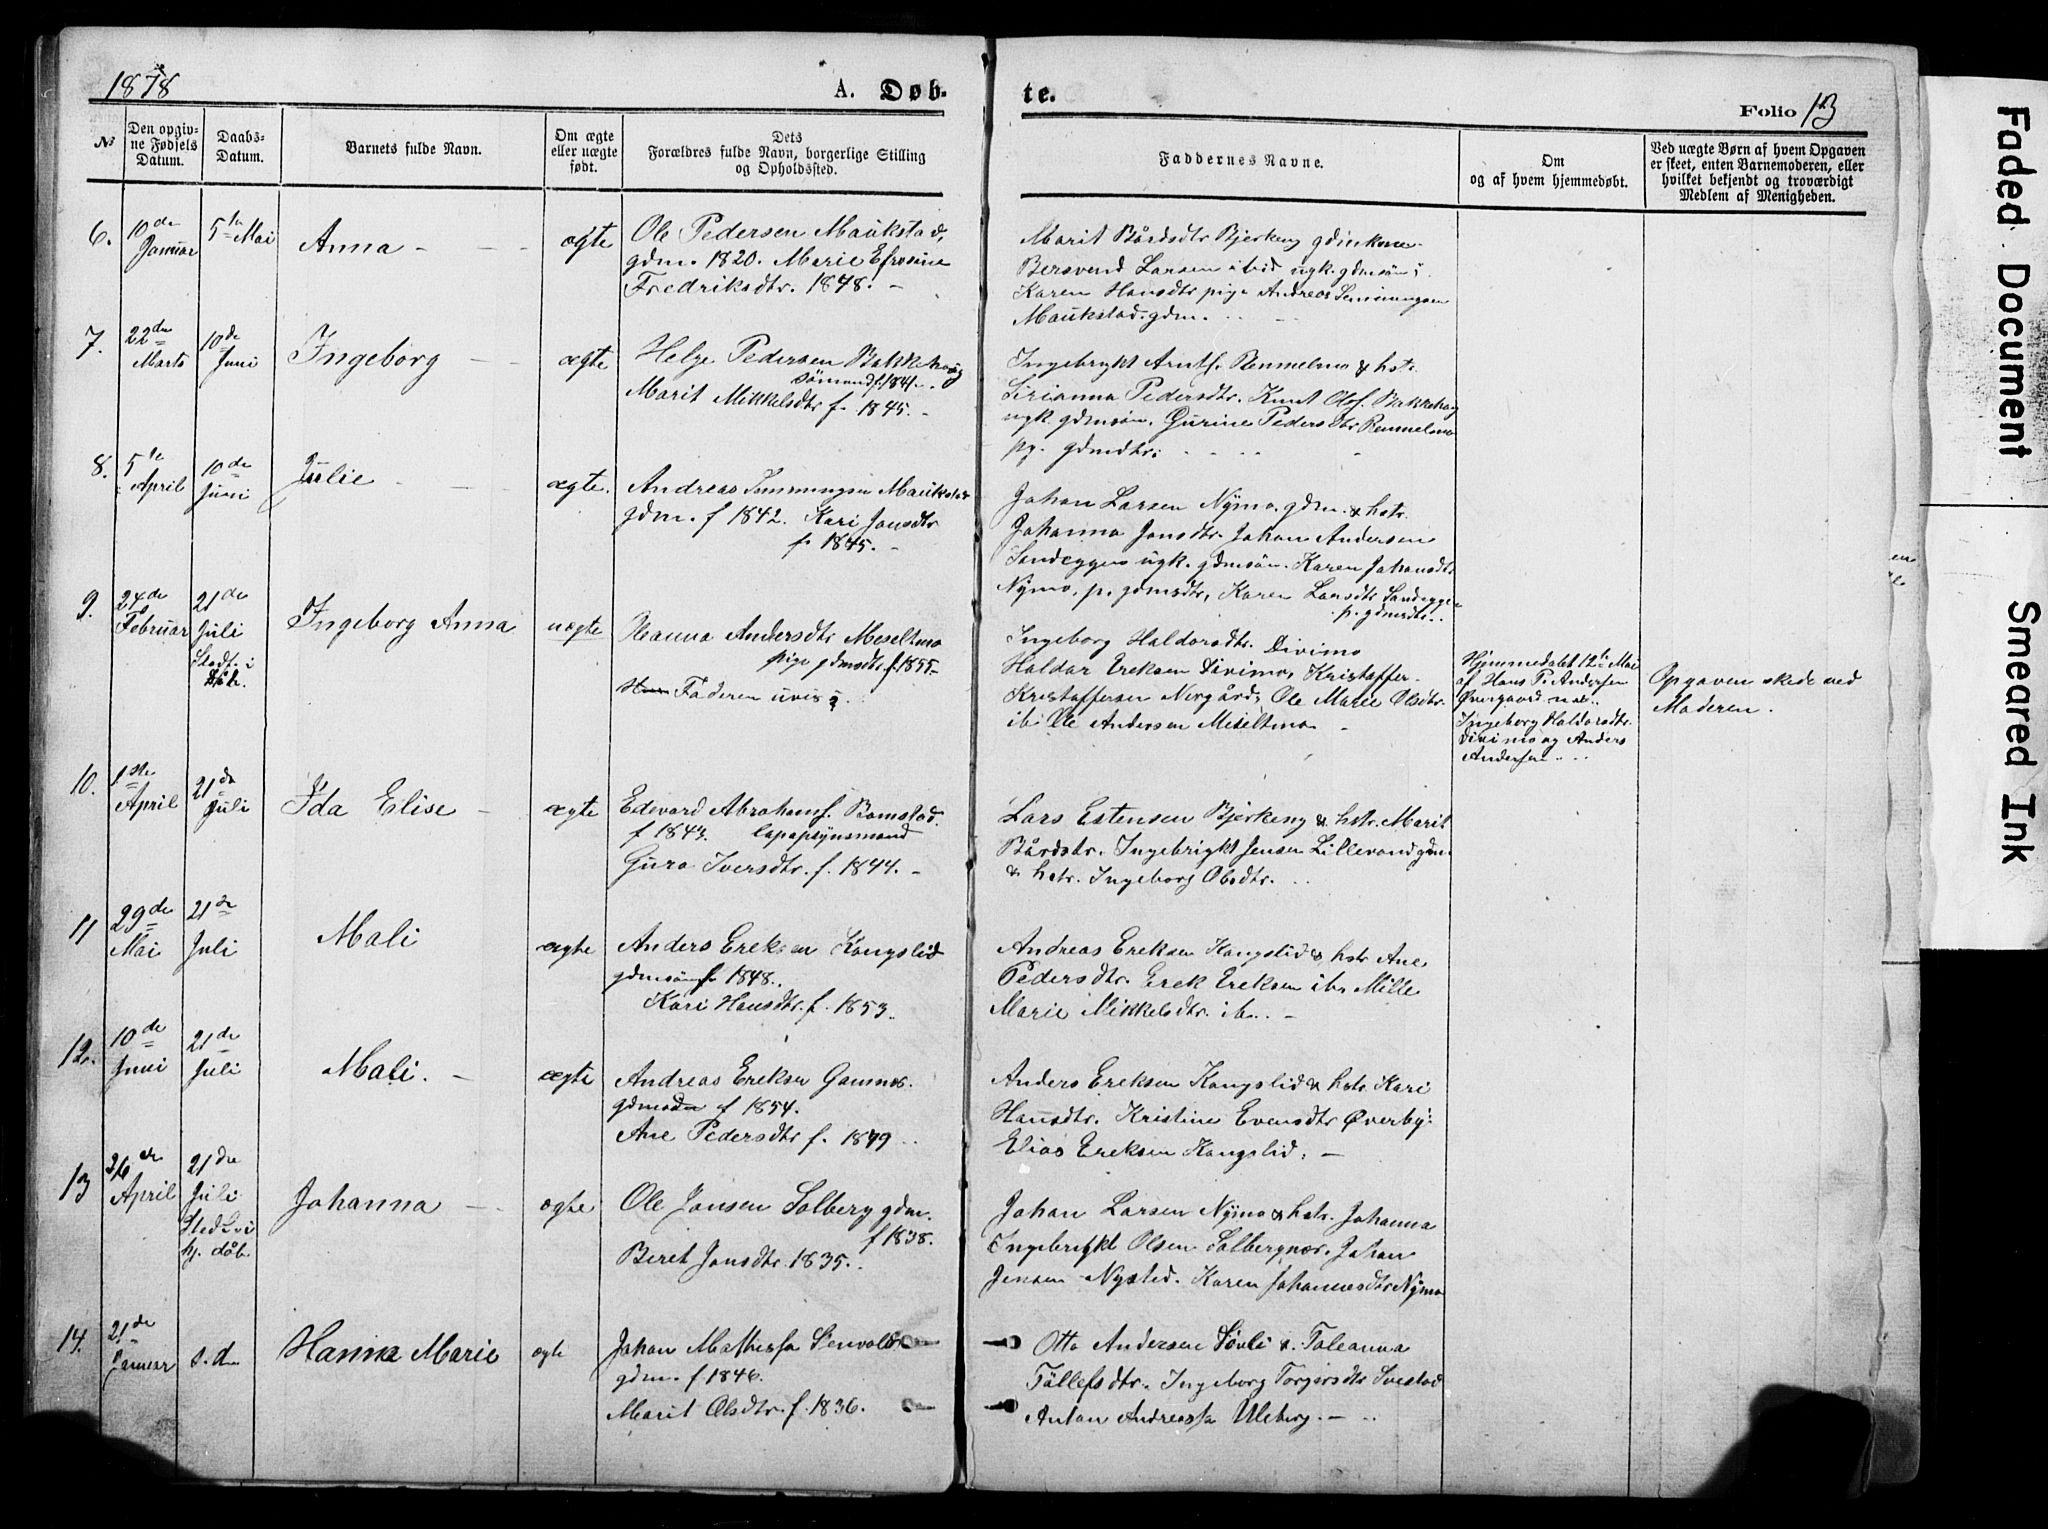 1878
A. Døb-
te.
Folio 13
№
Den opgiv-
ne Fødsels
Datum.
Daabs-
Datum.
Barnets fulde Navn.
Om ægte
eller uægte
født.
Dets
Forældres fulde Navn, borgerlige Stilling
og Opholdssted.
Faddernes Navne.
Om
og af hvem hjemmedøbt.
Ved uægte Børn af hvem Opgaven
er skeet, enten Barnemoderen, eller
hvilket bekjendt og troværdigt
Medlem af Menigheden.
6.
10de
Januar
5te Mai
Anna
ægte
Ole Pedersen Maukstad,
gdm. 1820. Marie Efrosine
Fredriksdtr. 1848.
Marit Bårdsdtr Bjerkeng gdmkone
Bersvend Larsen ibid ugk. gdmsøn
Karen Hansdtr pige Andreas Semmingsen
Maukstad. gdm.
7.
22de
Marts
10de
Juni
Ingeborg
ægte
Helge Pedersen Bakkehaug
sömand f. 1841.
Marit Mikkelsdtr f. 1845.
Ingebrykt Arntf. Remmelmo & hstr.
Sirianna Pedersdtr. Knut Olsf. Bakkehaug
ugk. gdmsøn. Gurine Pedersdtr Remmelmo
pg. gdmdtr.
8.
5te
April
10de
Juni
Julie
ægte.
Andreas Semmingsen Maukstad
gdm. f 1842. Kari Jansdtr
f. 1845.
Johan Larsen Nÿmo. gdm. & hstr.
Johanna Jonsdtr. Johan Andersen
Sandeggen ugk. gdmsön. Karen Johansdtr
Nÿmo, p. gdmsdtr, Karen Larsdtr Sandeggen
p. gdmsdtr.
9.
24de
Februar
21de
Juli
Ingeborg Anna
uægte
Oleanna Andersdtr Meseltmo
pige gdmsdtr. f. 1855.
Faderen uvis
Ingeborg Haldorsdtr. Divimo
Haldor Ereksen Divimo, Kristoffer
Kristoffersen Nergård, Ole Marie Olsdtr.
ib. Ole Andersen Meseltmo
Hjemmedøbt 12te Mai
af Hans P. Andersen
Øvergaard
Ingeborg Haldorsdtr.
Divimo og Anders
Andersen
Opgaven skede ved
Moderen.
10.
1ste
April
21de
Juli
Ida Elise
ægte
Edevard Abrahamf. Bomstad.
f 1843. lapopsynsmand
Guro Iversdtr. f. 1844.
Lars Estensen Bjerkeng & hstr. Marit
Bårdsdtr. Ingebrigt Jensen Lillevand gdm.
& hstr. Ingeborg Olsdtr.
11
29de
Mai
21de
Juli
Mali
ægte
Anders Ereksen Kongslid
gdmsön f. 1848.
Kari Hansdtr. f. 1853.
Andreas Ereksen Kongslid & hstr Ane
Pedersdtr. Erek Ereksen ib. Mille
Marie Mikkelsdtr. ib.
12.
10de
Juni
21de
Juli
Mali.
ægte
Andreas Ereksen Gamnes.
gdmsön f 1854.
Ane Pedersdtr f. 1849
Anders Ereksen Kongslid & hstr Kari
Hansdtr. Kristine Evensdtr Øverby.
Elias Ereksen Kongslid.
13
26de
April
21de
Juli
Sted. i
hj. döb.
Johanna
ægte
Ole Jonsen Solberg gdm.
f 1838.
Beret Jonsdtr. 1835.
Johan Larsen Nÿmo & hstr. Johanna
Ingebrigkt Olsen Solbergnes. Johan
Jensen Nysted. Karen Johannesdtr Nÿmo
14.
21de
Januar
s.d.
Hanna Marie
ægte
Johan Mathisf
gdm. f 1846.
Marit Olsdtr. f. 1836.
Otto Andersen Sövli & Toleanna
Tollefsdtr. Ingeborg Torgersdtr
Anton Andreasf Uleberg.
Faded Document
Smeared Ink